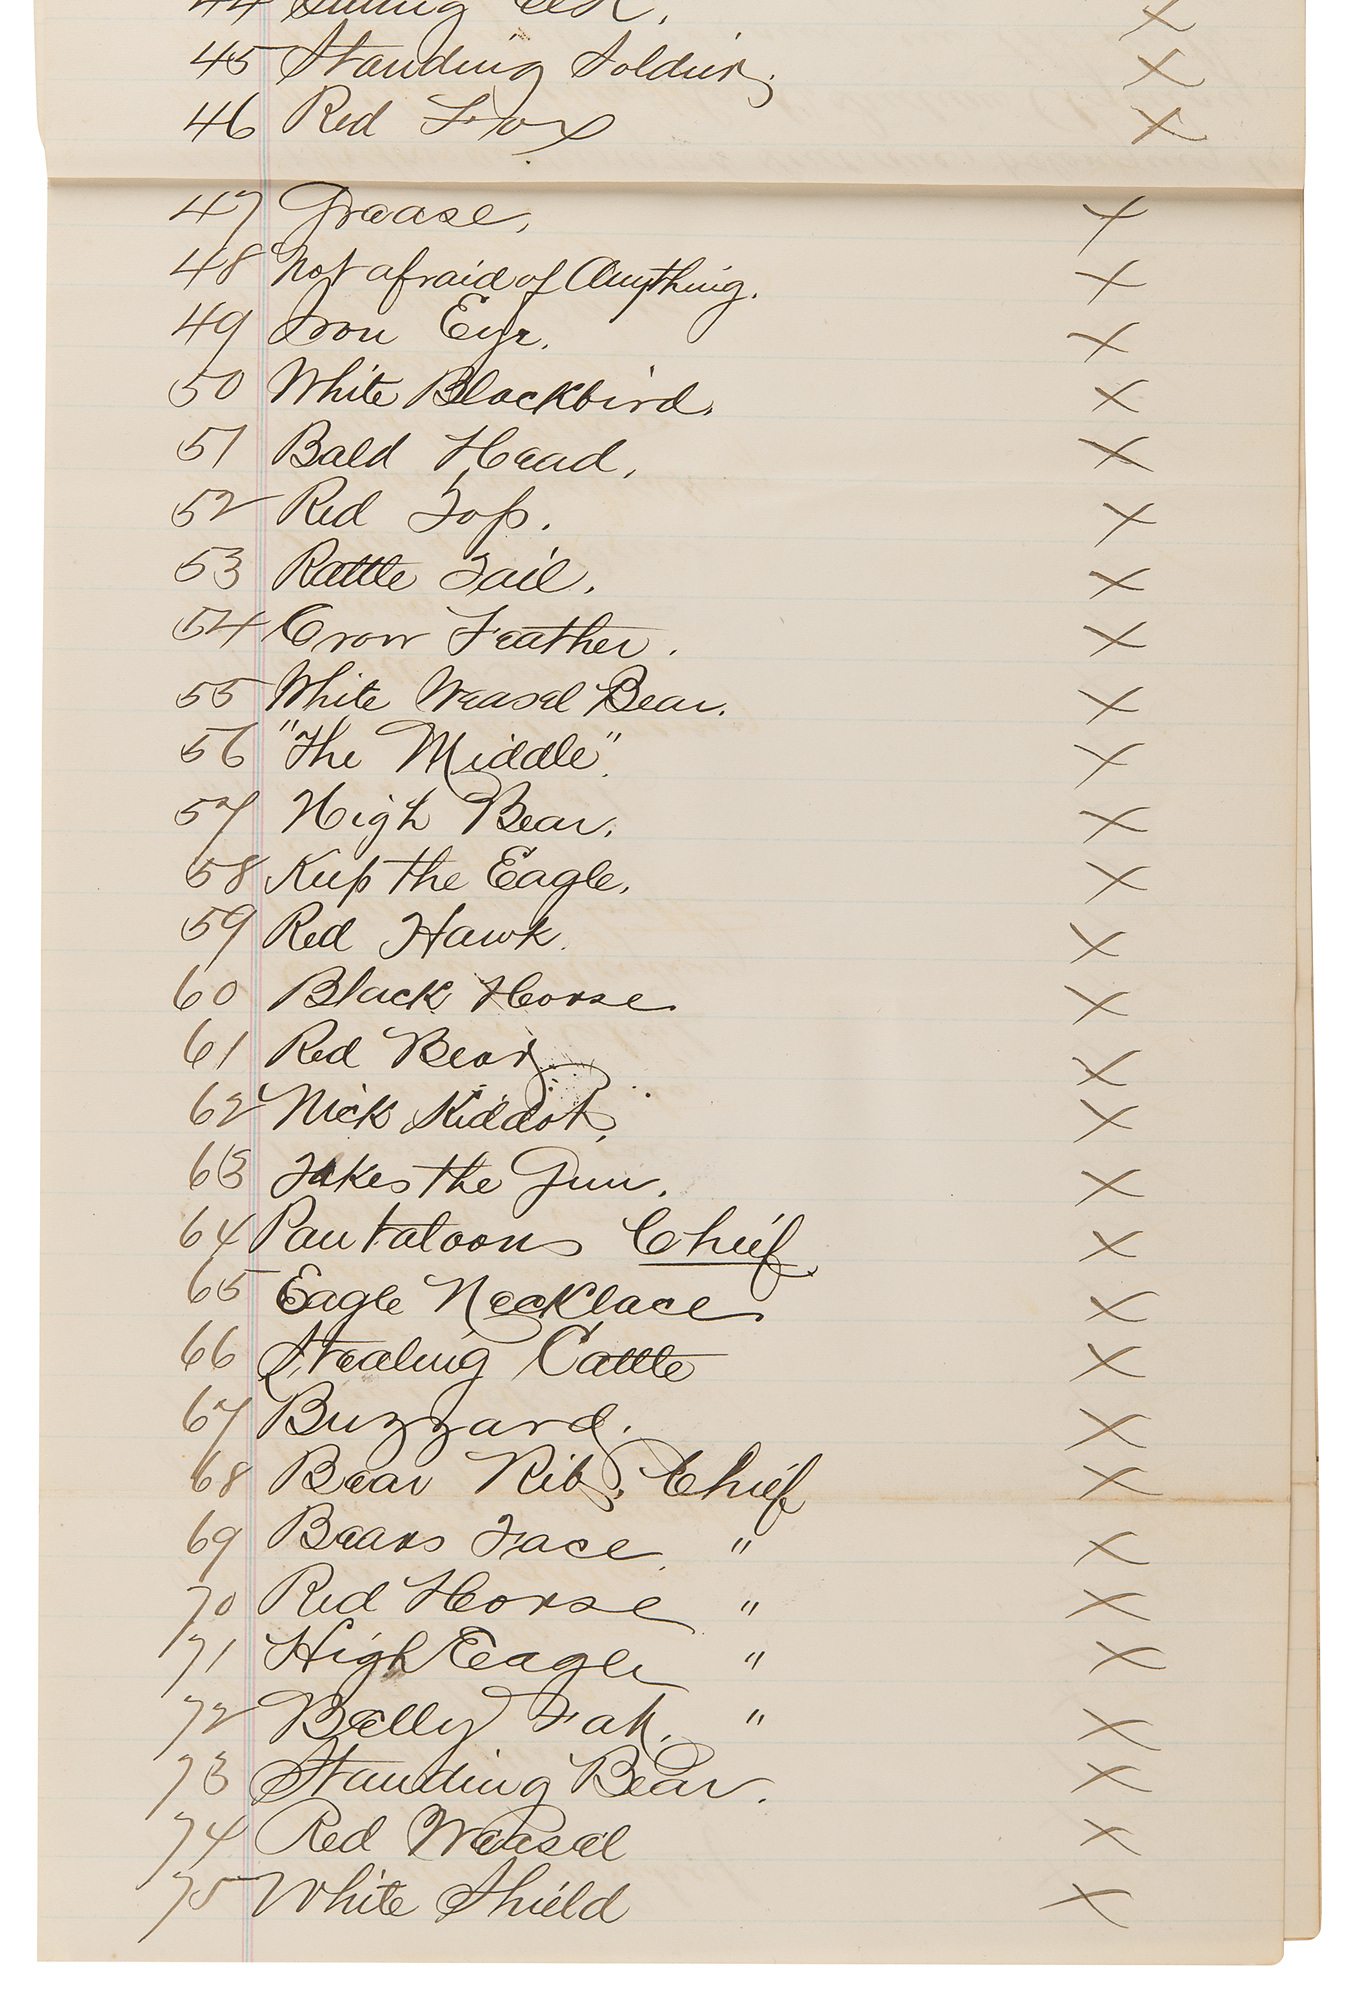 44 Sitting Elk. X
45 Standing Soldier. X
46 Red Fox X
47 Grease, X
48 Not afraid of Anything. X
49 Iron Eye. X
50 White Blackbird. X
51 Bald Head, X
52 Red Top. X
53 Rattle Tail. X
54 Crow Feather. X
55 White Weasel Bear. X
56 "The Middle". X
57 High Bear. X
58 Keep the Eagle. X
59 Red Hawk. X
60 Black Horse. X
61 Red Bear X
62 Nick X
63 Takes the Gun. X
64 Pantaloons Chief X
65 Eagle Necklace. X
66 Stealing Cattle X
67 Buzzard. X
68 Bear Rib, Chief X
69 Bears Face. " X
70 Red Horse " X
71 High Eagle " X
72 Belly Fat. " X
73 Standing Bear. X
74 Red Weasel X
75 White Shield X